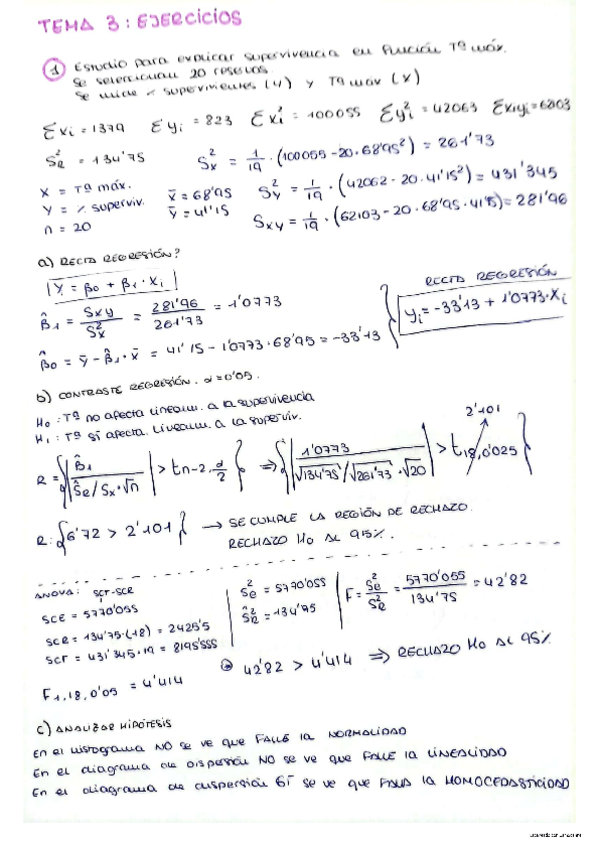 TEMA 3: EJERCICIOS
① Estudio para explicar supervivencia en función Tª máx.
Se seleccionan 20 reservas.
Se mide % supervivientes (Y) y Tª max (X)
Σxi = 1379 Σyi = 823 Σxi² = 100055 Σyi² = 42063 Σxiyi = 6803
S²R = 134'75
S²x = 1/19 · (100055 - 20 · 68'95²) = 261'73
X = Tª máx.
Y = % superviv.
n = 20
x̄ = 68'95
ȳ = 41'15
S²y = 1/19 · (42062 - 20 · 41'15²) = 431'345
Sxy = 1/19 · (62103 - 20 · 68'95 · 41'5) = 281'96
a) RECTA REGRESIÓN?
Y = β0 + β1 · Xi
β̂1 = Sxy/S²x = 281'96/261'73 = 1'0773
β̂0 = ȳ - β̂1 · x̄ = 41'15 - 1'0773 · 68'95 = -33'13
RECTA REGRESIÓN
yi = -33'13 + 1'0773 · Xi
b) CONTRASTE REGRESIÓN. α = 0'05.
H0: Tª no afecta linealm. a la supervivencia
H1: Tª sí afecta linealm. a la superviv.
2'101
R = {|β̂1 / (ŜR/Sx·√n)| > tn-2, α/2} ⇒ {|1'0773 / (√134'75/√261'73·√20)| > t18, 0'025}
R: {6'72 > 2'101} → SE CUMPLE LA REGIÓN DE RECHAZO.
RECHAZO H0 AL 95%.
ANOVA: SCT-SCR
SCE = 5770'055
SCR = 134'75·(18) = 2425'5
SCT = 431'345·19 = 8195'555
F1,18,0'05 = 4'414
Ŝ²e = 5770'055
Ŝ²R = 134'75
F = S²e/S²R = 5770'055/134'75 = 42'82
42'82 > 4'414 ⇒ RECHAZO H0 AL 95%
c) ANALIZAR HIPÓTESIS
En el histograma NO se ve que FALLE la NORMALIDAD
En el diagrama de dispersión NO se ve que FALLE la LINEALIDAD
En el diagrama de dispersión SÍ se ve que FALLA la HOMOCEDASTICIDAD